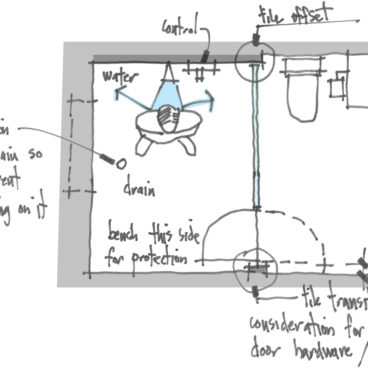 control
tile offset
water
ain so
drain
ng on it
bench this side
for protection
tile trans
consideration for
door hardware